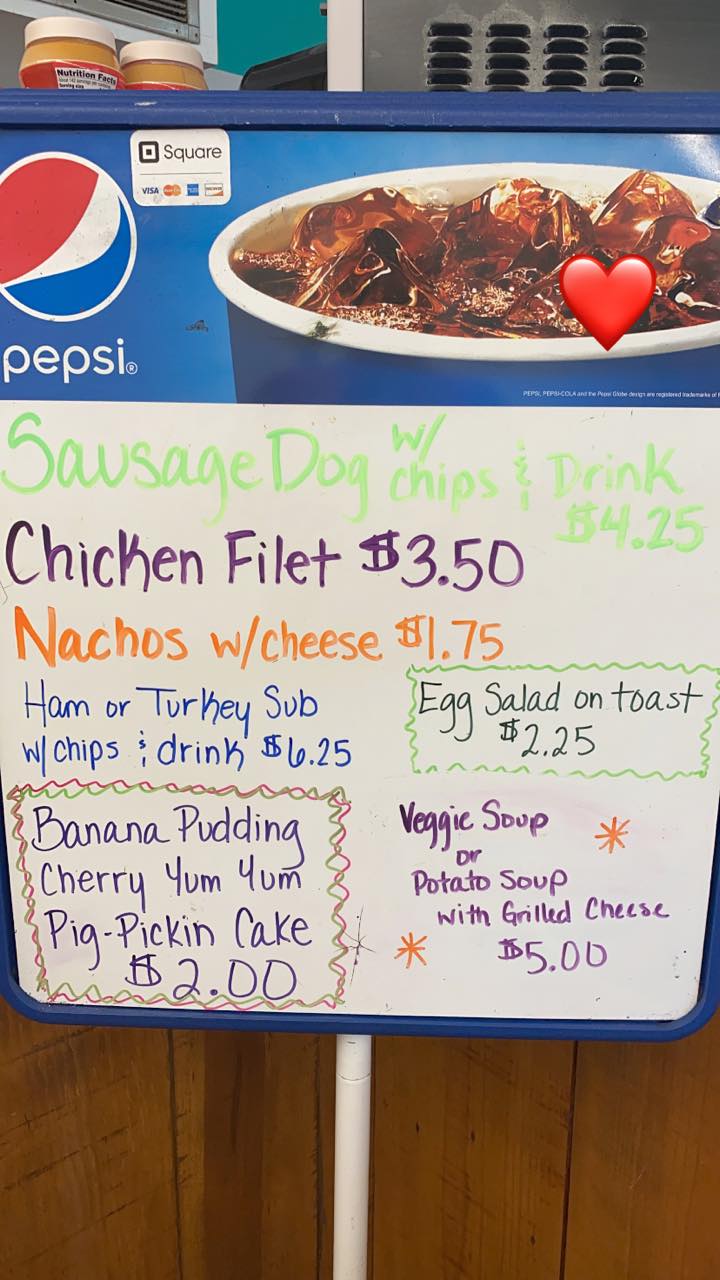 Nutrition Facts
Square
VISA
pepsi®
PEPSI, PEPSI-COLA and the Pepsi Globe design are registered trademarks of
Sausage Dog w/ chips & Drink
$4.25
Chicken Filet $3.50
Nachos w/cheese $1.75
Ham or Turkey Sub
w/chips & drink $6.25
Egg Salad on toast
$2.25
Banana Pudding
Cherry Yum Yum
Pig-Pickin Cake
$2.00
Veggie Soup
or
Potato Soup
with Grilled Cheese
$5.00